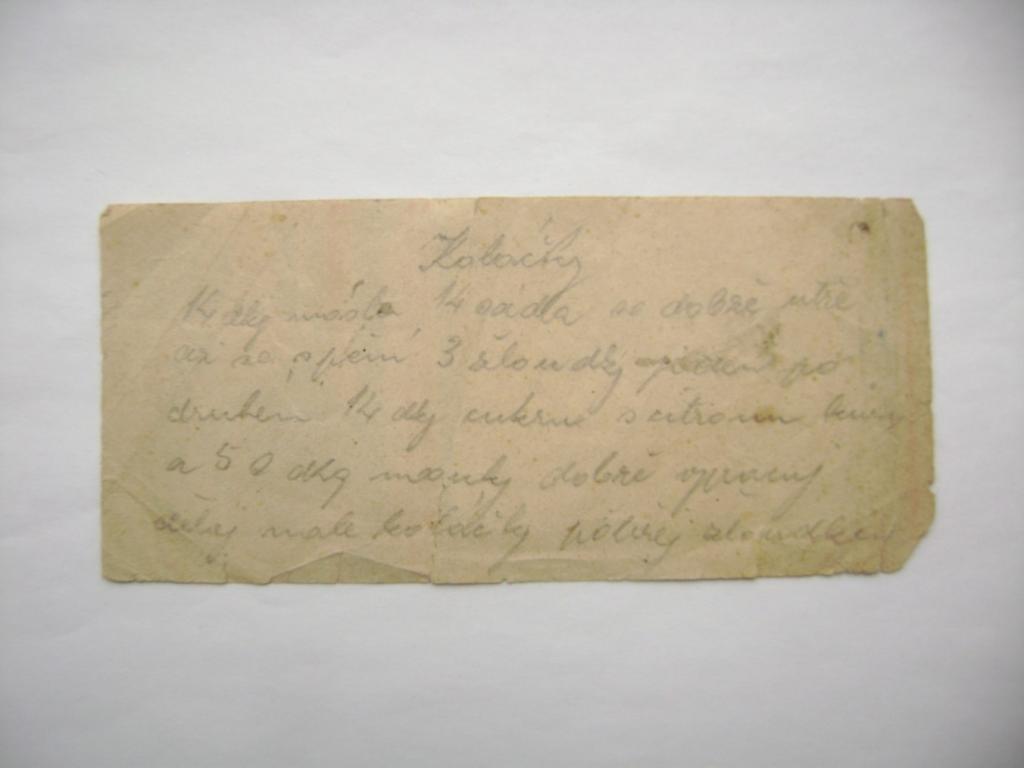 Koláčky
14 dkg másla 14 sádla se dobře utře
až se spění 3 žloudky jeden po
druhém 14 dkg cukru s citronu kůry
a 50 dkg mouky dobře vypracuj
dělaj malé koláčky potřej žloudkem